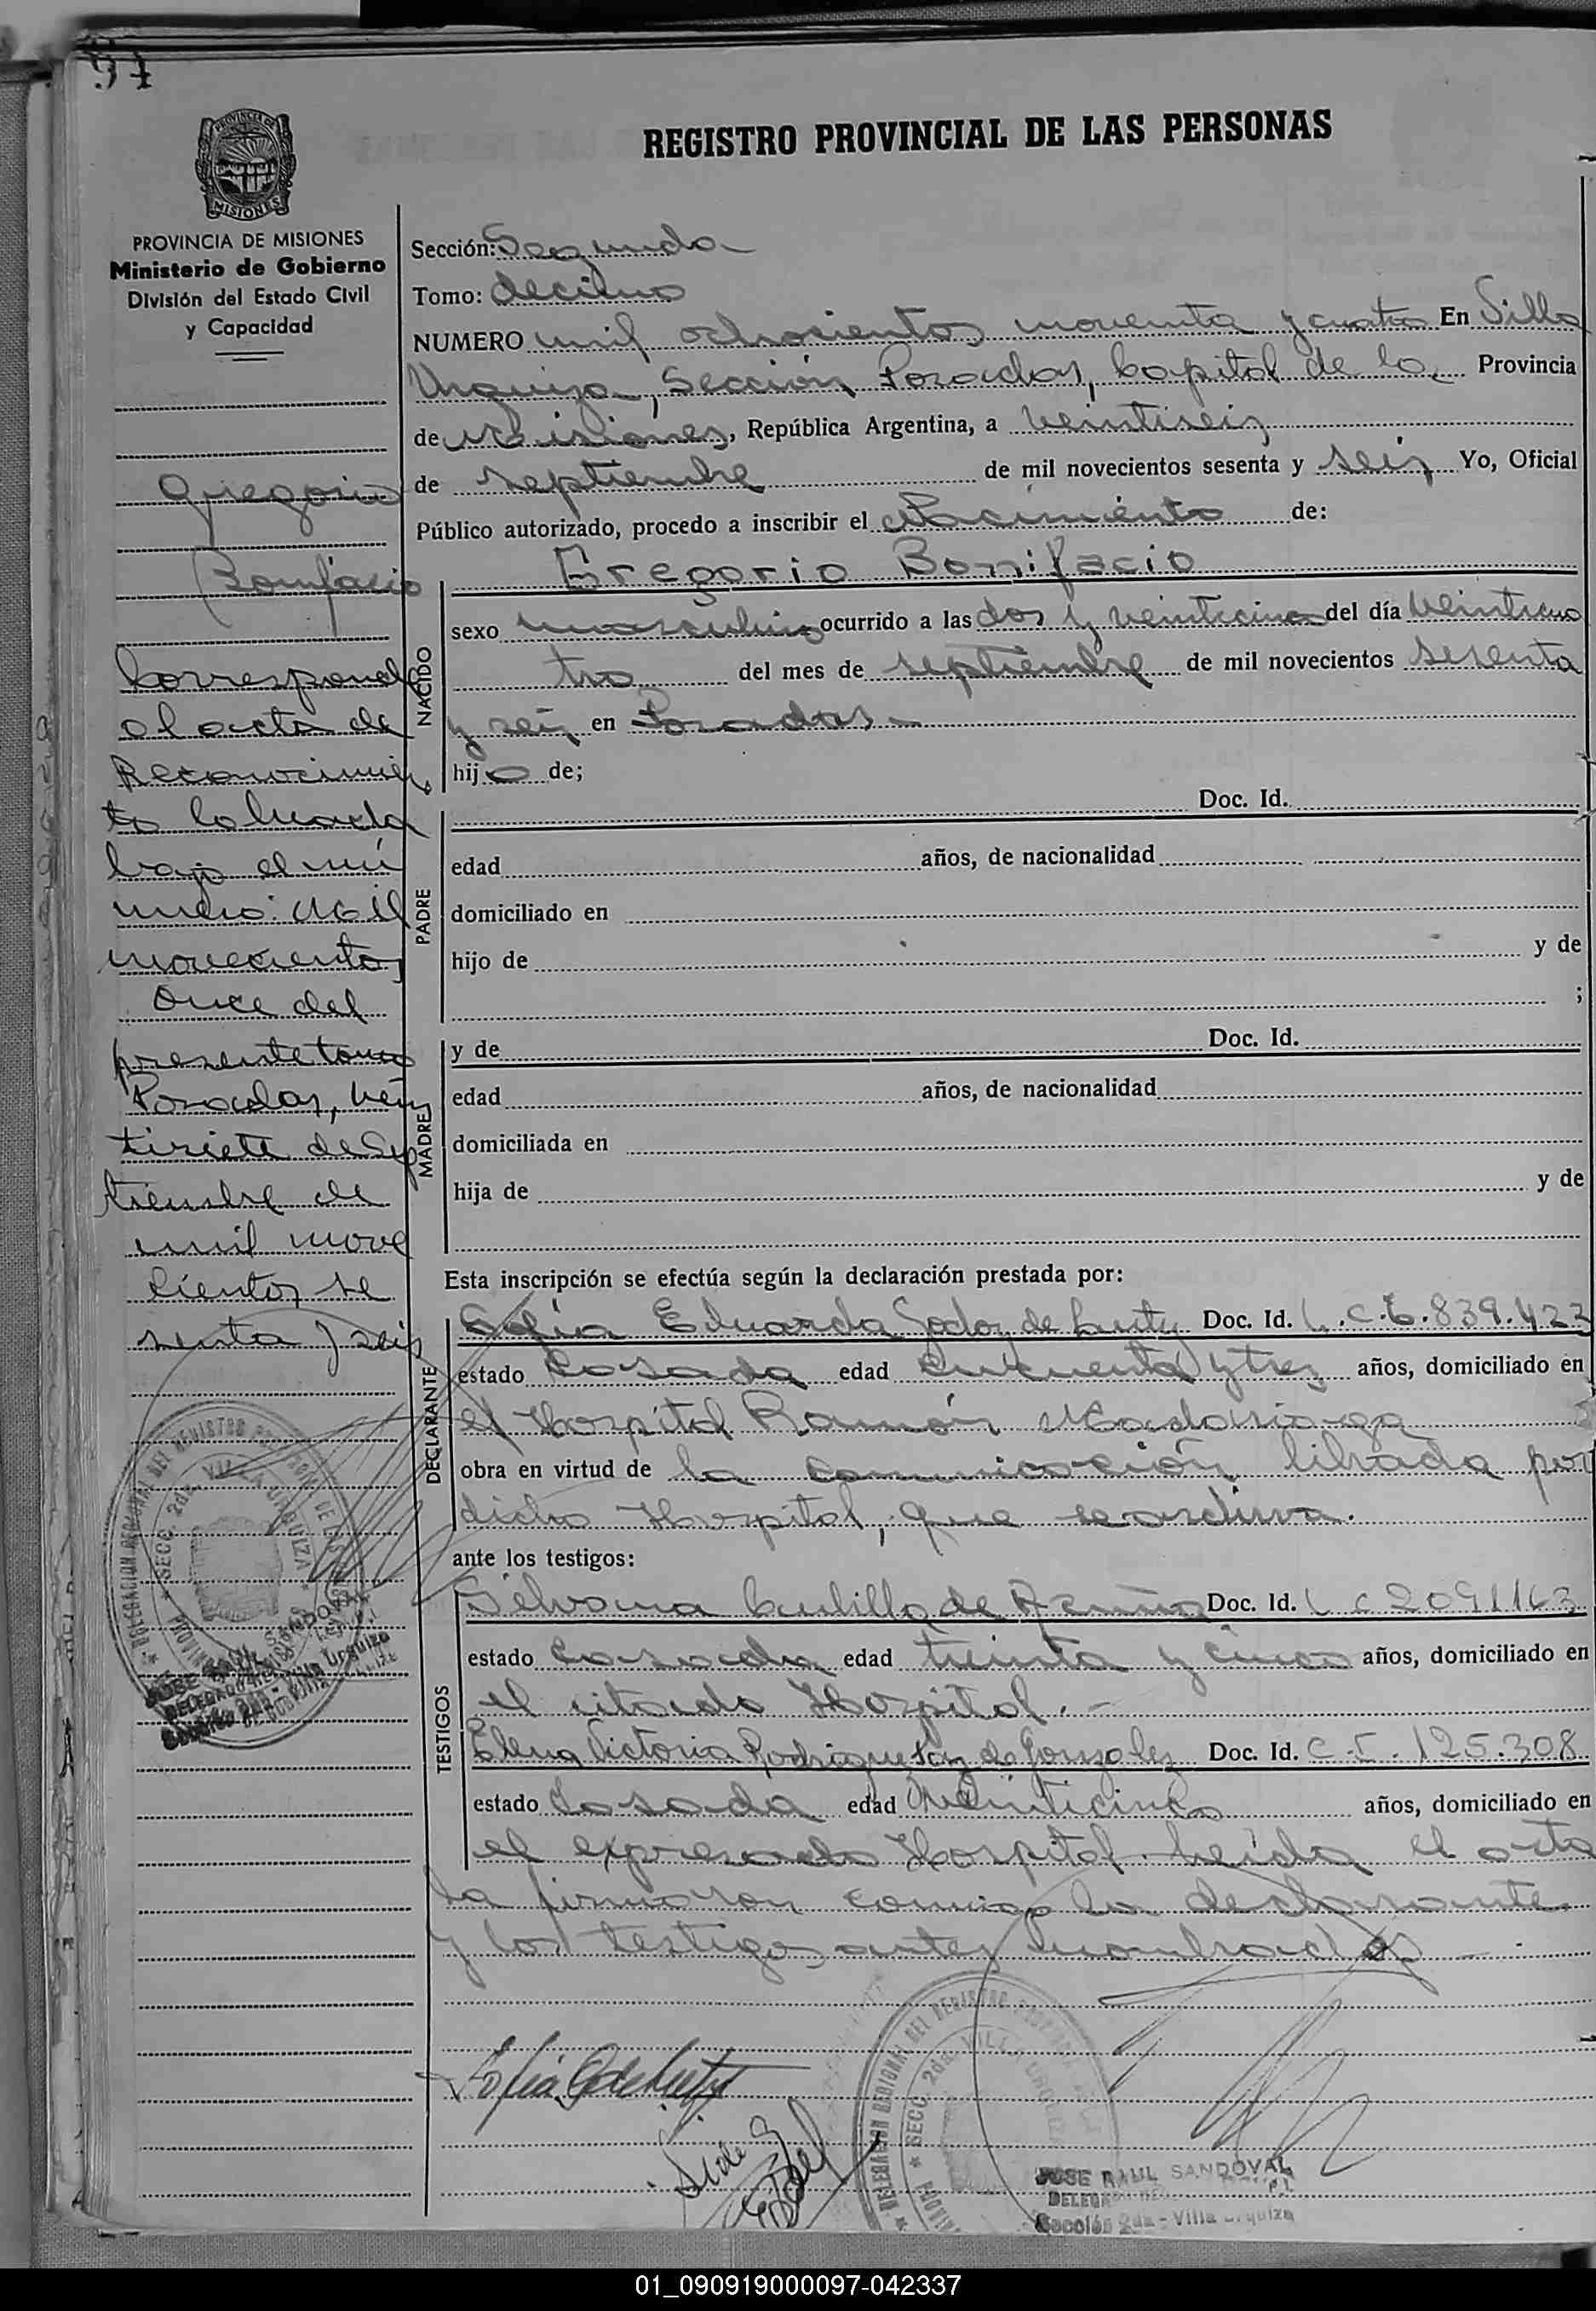 97
REGISTRO PROVINCIAL DE LAS PERSONAS
PROVINCIA DE MISIONES
MISIONES
PROVINCIA DE MISIONES
Ministerio de Gobierno
División del Estado Civil
y Capacidad
Gregorio
Bonifacio
Corresponde
al acta de
Reconocimien
to labrada
bajo el nú
mero: Mil
novecientos
once del
presente tomo
Posadas, vein
tisiete de Sep
tiembre de
mil nove
cientos se
senta y seis
Sección: Segunda
Tomo: decimo
NUMERO mil ochocientos noventa y cuatro En Villa
Urquiza, Sección Posadas, Capital de la Provincia
de Misiones, República Argentina, a veintiseis
de septiembre de mil novecientos sesenta y seis Yo, Oficial
Público autorizado, procedo a inscribir el Nacimiento de:
Gregorio Bonifacio
NACIDO
sexo masculino ocurrido a las dos y veinticinco del día veinticua
tro del mes de septiembre de mil novecientos sesenta
y seis en Posadas.-
hijo de;
Doc. Id.
PADRE
edad años, de nacionalidad
domiciliado en
hijo de y de
;
MADRE
y de Doc. Id.
edad años, de nacionalidad
domiciliada en
hija de y de
Esta inscripción se efectúa según la declaración prestada por:
DECLARANTE
Eduarda Godoy de Doc. Id. L.C.6.839.423
estado Casada edad cincuenta y tres años, domiciliado en
el Hospital Ramón Madariaga
obra en virtud de la comunicación librada por
dicho Hospital, que se archiva.
ante los testigos:
TESTIGOS
Silvana de Doc. Id. L C 2091163
estado Casada edad treinta y cinco años, domiciliado en
el citado Hospital.-
Elena Victoria Rodriguez de Gonzalez Doc. Id. C.I. 125.308
estado Casada edad Veinticinco años, domiciliado en
el expresado Hospital. Leída el acta
la firmaron conmigo la declarante
y los testigos antes nombrados
DELEGACION REGIONAL DEL REGISTRO PROVINCIAL DE LAS
SECC. 2da. VILLA URQUIZA
JOSE RAUL SANDOVAL
Sección 2da - Villa Urquiza
DELEGACION REGIONAL DEL REGISTRO
SECC. 2da. VILLA URQUIZA
JOSE RAUL SANDOVAL
Sección 2da - Villa Urquiza
01_090919000097-042337